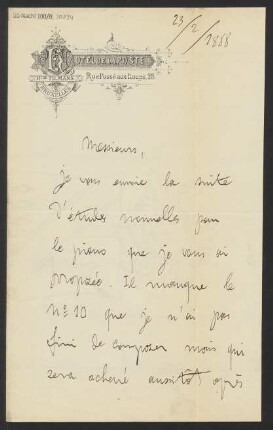 23/2/1888
HOTEL DE LA POSTE
Rue Fossé aux Loups, 28
BRUXELLES
Messieurs,
je vous envoie la suite
d'études nouvelles pour
le piano que je vous ai
proposée. Il manque le
nº 10 que je n'ai pas
fini de composer mais qui
sera achevé aussitôt après